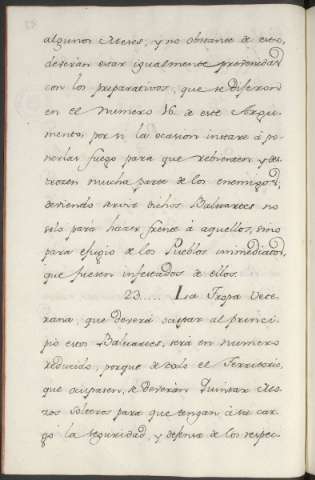 algunos Meses, y no obstante de esto,
deverán estar igualmente prevenidas
con los preparativos, que se dixeron
en el numero 16 de este Argu-
mento, por si la ocasion instare á po-
nerlas fuego para que rebienten y des-
trozen mucha parte de los enemigos,
deviendo servir dichos Baluartes no
solo para hazer frente á aquellos, sino
para efugio de los Pueblos inmediatos,
que fuesen infestados de ellos.
23..... La Tropa Vete-
rana, que deverá ocupar al princi-
pio estos Baluartes, será en numero
reducido, porque de todo el Territorio,
que ocupasen, se deverán Quintar Mo-
zos solteros para que tengan á su car-
go la seguridad, y defensa de los respec-